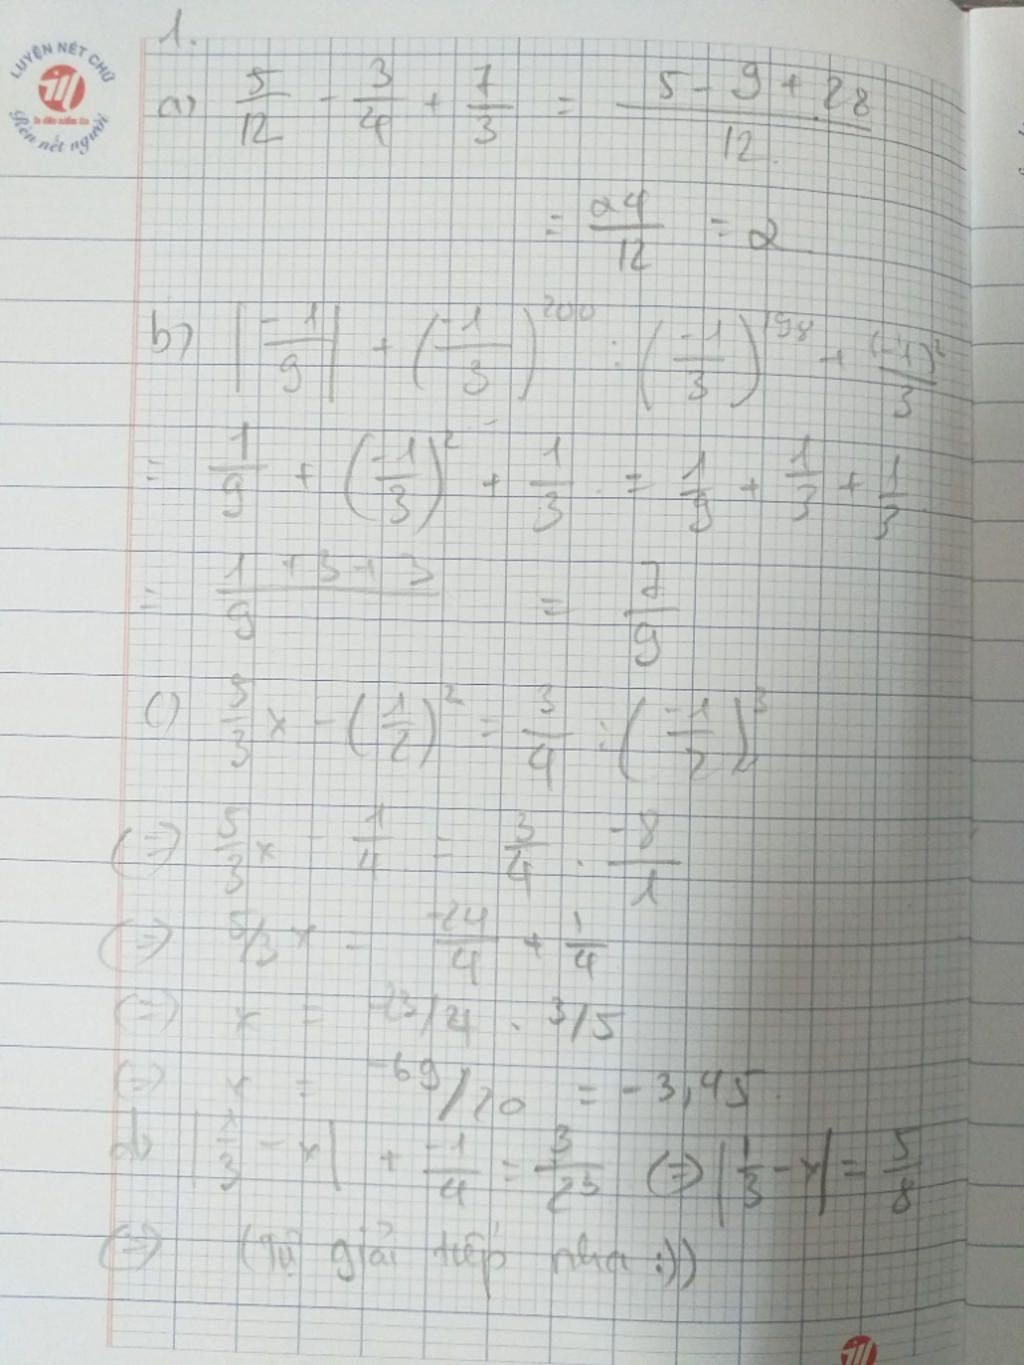 LUYỆN NÉT CHỮ
Rèn nết người
1.
a) 5/12 - 3/4 + 7/3 = (5 - 9 + 28)/12
= 24/12 = 2
b) |-1/9| + (-1/3)^200 : (-1/3)^198 + (-1)^2/3
= 1/9 + (-1/3)^2 + 1/3 = 1/9 + 1/3 + 1/3
= (1 + 3 + 3)/9 = 7/9
c) 5/3 x - (1/2)^2 = 3/4 : (-1/2)^3
(=) 5/3 x - 1/4 = 3/4 . -8/1
(=) 5/3 x = -24/4 + 1/4
(=) x = -23/4 . 3/5
(=) x = -69/20 = -3,45
d) |1/3 - x| + -1/4 = 3/25 (=) |1/3 - x| = 5/8
(=) (Tự giải tiếp nha :))